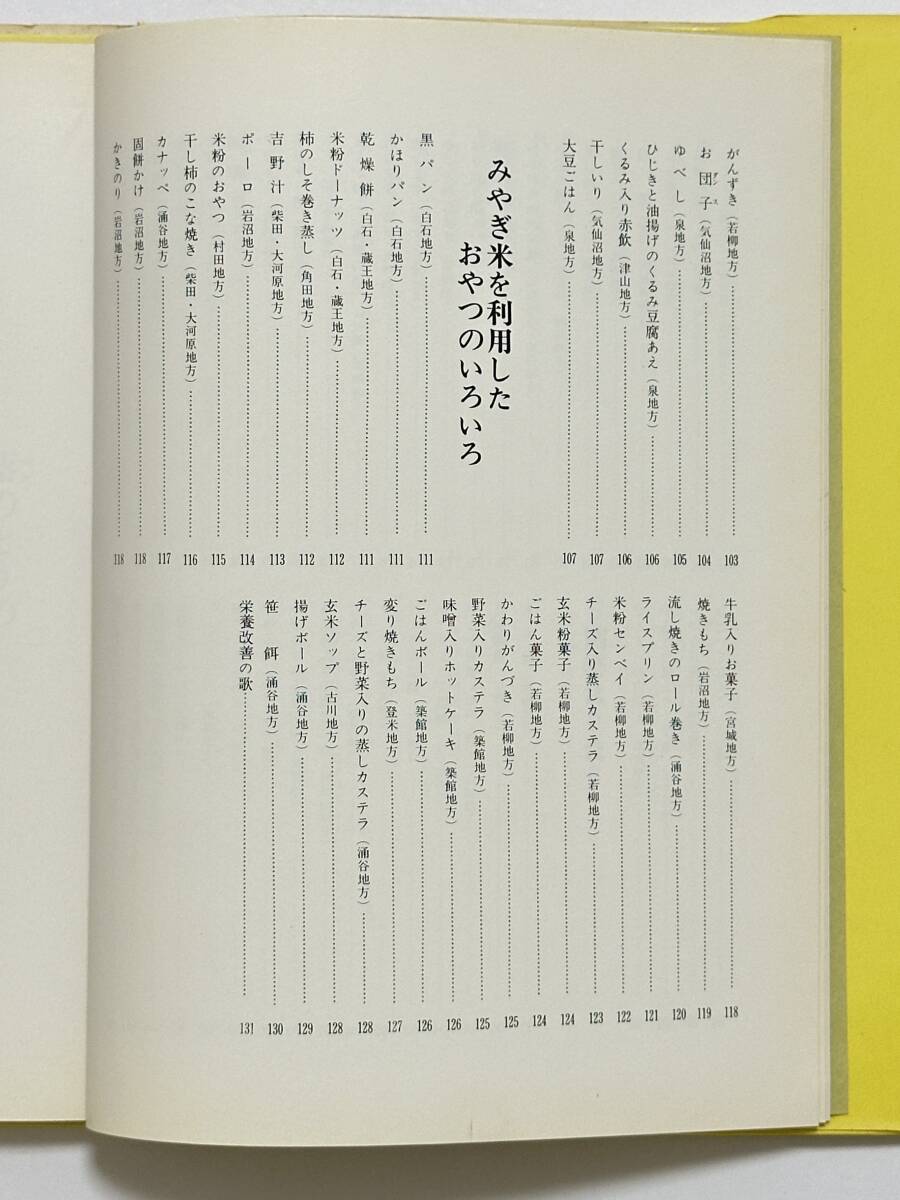 がんずき（若柳地方）…………103
お団子（気仙沼地方）…………104
ゆべし（泉地方）…………105
ひじきと油揚げのくるみ豆腐あえ（泉地方）…………106
くるみ入り赤飲（津山地方）…………106
干しいり（気仙沼地方）…………107
大豆ごはん（泉地方）…………107
みやぎ米を利用した
おやつのいろいろ
黒パン（白石地方）…………111
かほりパン（白石地方）…………111
乾燥餅（白石・蔵王地方）…………111
米粉ドーナッツ（白石・蔵王地方）…………112
柿のしそ巻き蒸し（角田地方）…………112
吉野汁（柴田・大河原地方）…………113
ボーロ（岩沼地方）…………114
米粉のおやつ（村田地方）…………115
干し柿のこな焼き（柴田・大河原地方）…………116
カナッペ（涌谷地方）…………117
固餅かけ（岩沼地方）…………118
かきのり（岩沼地方）…………118
牛乳入りお菓子（宮城地方）…………118
焼きもち（岩沼地方）…………119
流し焼きのロール巻き（涌谷地方）…………120
ライスプリン（若柳地方）…………121
米粉センベイ（若柳地方）…………122
チーズ入り蒸しカステラ（若柳地方）…………123
玄米粉菓子（若柳地方）…………124
ごはん菓子（若柳地方）…………124
かわりがんづき（若柳地方）…………125
野菜入りカステラ（築館地方）…………125
味噌入りホットケーキ（築館地方）…………126
ごはんボール（築館地方）…………126
変り焼きもち（登米地方）…………127
チーズと野菜入りの蒸しカステラ（涌谷地方）…………128
玄米ソップ（古川地方）…………128
揚げボール（涌谷地方）…………129
笹餌（涌谷地方）…………130
栄養改善の歌…………131